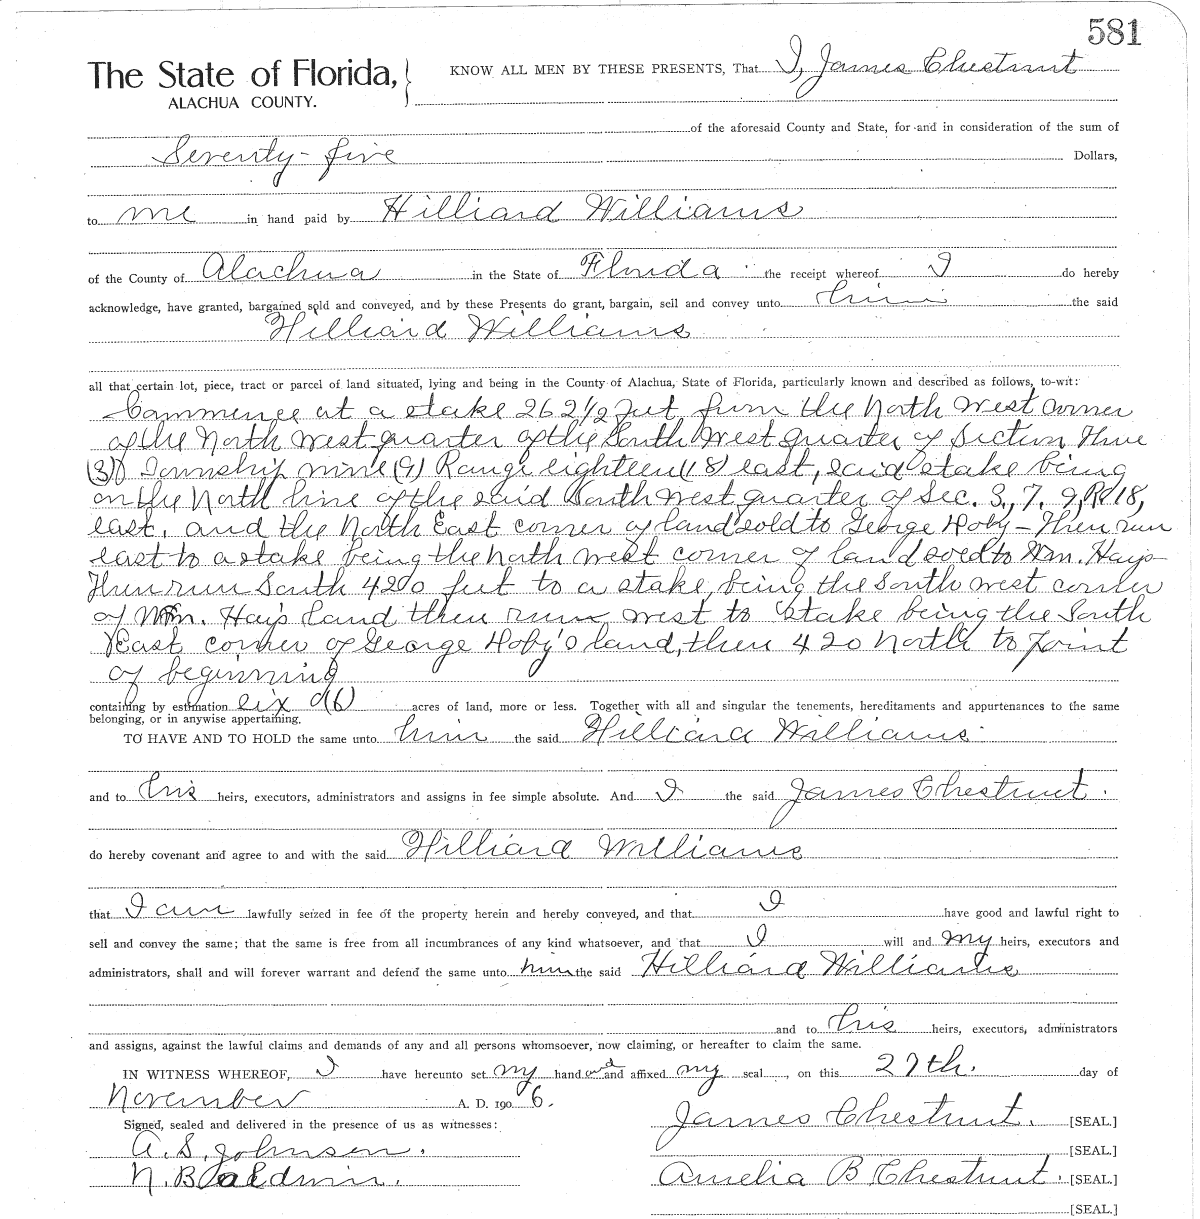 581
The State of Florida,} KNOW ALL MEN BY THESE PRESENTS, That I, James Chestnut
ALACHUA COUNTY.
of the aforesaid County and State, for and in consideration of the sum of
Seventy-five Dollars,
to me in hand paid by Hilliard Williams
of the County of Alachua in the State of Florida the receipt whereof I do hereby
acknowledge, have granted, bargained sold and conveyed, and by these Presents do grant, bargain, sell and convey unto him the said
Hilliard Williams
all that certain lot, piece, tract or parcel of land situated, lying and being in the County of Alachua, State of Florida, particularly known and described as follows, to-wit:
Commence at a stake 262½ feet from the North West corner
of the North West quarter of the South West quarter of Section Three
(3) Township nine (9) Range eighteen (18) east, said stake being
on the North line of the said South West quarter of Sec. 3, T. 9, R 18,
east, and the North East corner of land sold to George Hoby - Then run
east to a stake being the North West corner of land sold to Wm. Hays
Then run South 420 feet to a stake, being the South West corner
of Wm. Hays land then run west to stake being the South
East corner of George Hoby's land, then 420 North to point
of beginning
containing by estimation six (6) acres of land, more or less. Together with all and singular the tenements, hereditaments and appurtenances to the same
belonging, or in anywise appertaining.
TO HAVE AND TO HOLD the same unto him the said Hilliard Williams
and to his heirs, executors, administrators and assigns in fee simple absolute. And I the said James Chestnut.
do hereby covenant and agree to and with the said Hilliard Williams
that I am lawfully seized in fee of the property herein and hereby conveyed, and that I have good and lawful right to
sell and convey the same; that the same is free from all incumbrances of any kind whatsoever, and that I will and my heirs, executors and
administrators, shall and will forever warrant and defend the same unto him the said Hilliard Williams
and to his heirs, executors, administrators
and assigns, against the lawful claims and demands of any and all persons whomsoever, now claiming, or hereafter to claim the same.
IN WITNESS WHEREOF, I have hereunto set my hand and and affixed my seal, on this 27th. day of
November A. D. 1906.
Signed, sealed and delivered in the presence of us as witnesses: James Chestnut. [SEAL.]
A. S. Johnson. [SEAL.]
N. Baldwin. Amelia B Chestnut. [SEAL.]
[SEAL.]